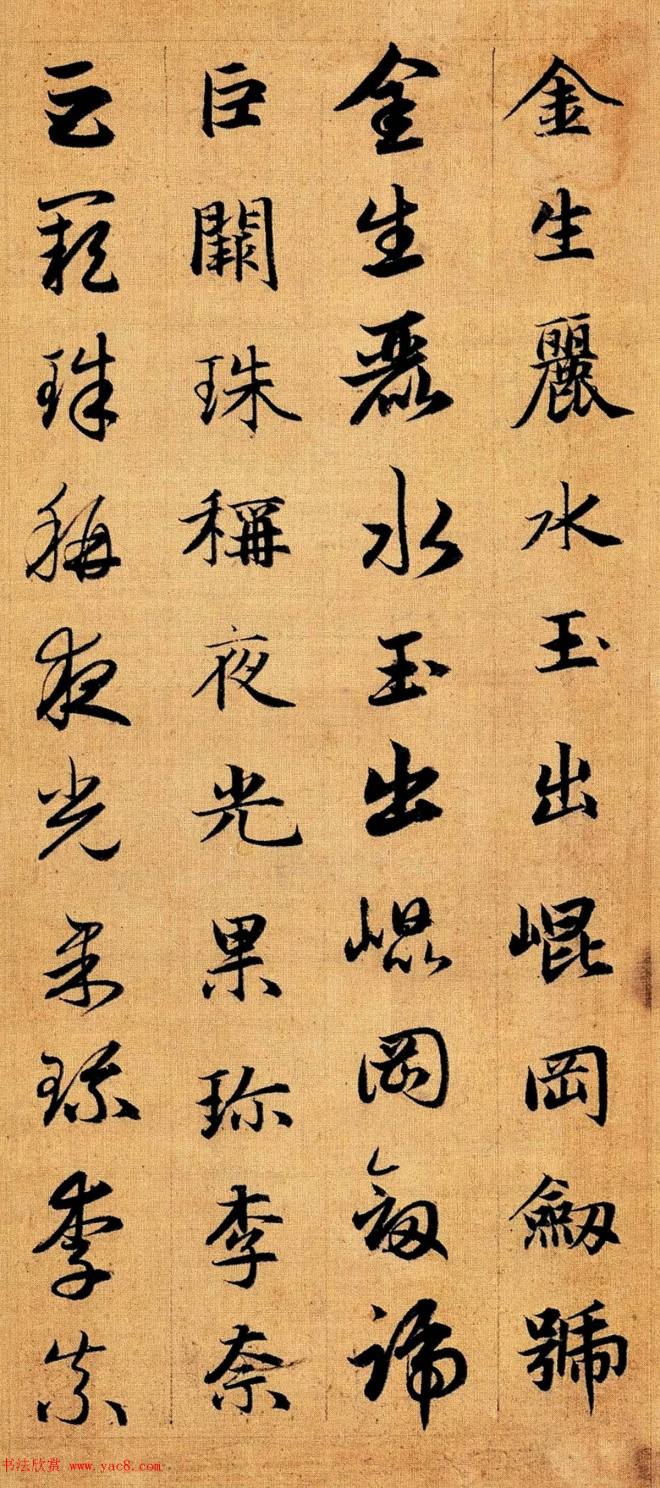 金生麗水玉出崐岡劔號
金生麗水玉出崐岡劔號
巨闕珠稱夜光果珎李奈
巨闕珠稱夜光果珎李柰
书法欣赏 www.yac8.com